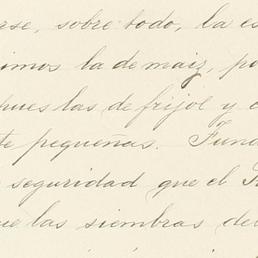 rse, sobre todo, la es
imos la de maiz, po
pues las de frijol y c
te pequeñas. Fund
seguridad que el
ue las siembras de